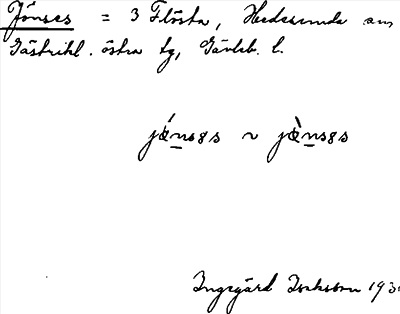 Jönses = 3 Flösta, Hedesunda sn
Gästrikl. östra tg, Gävleb. l.
jǿns8s ~ jœ̀ns8s
Ingegärd Isaksson 193